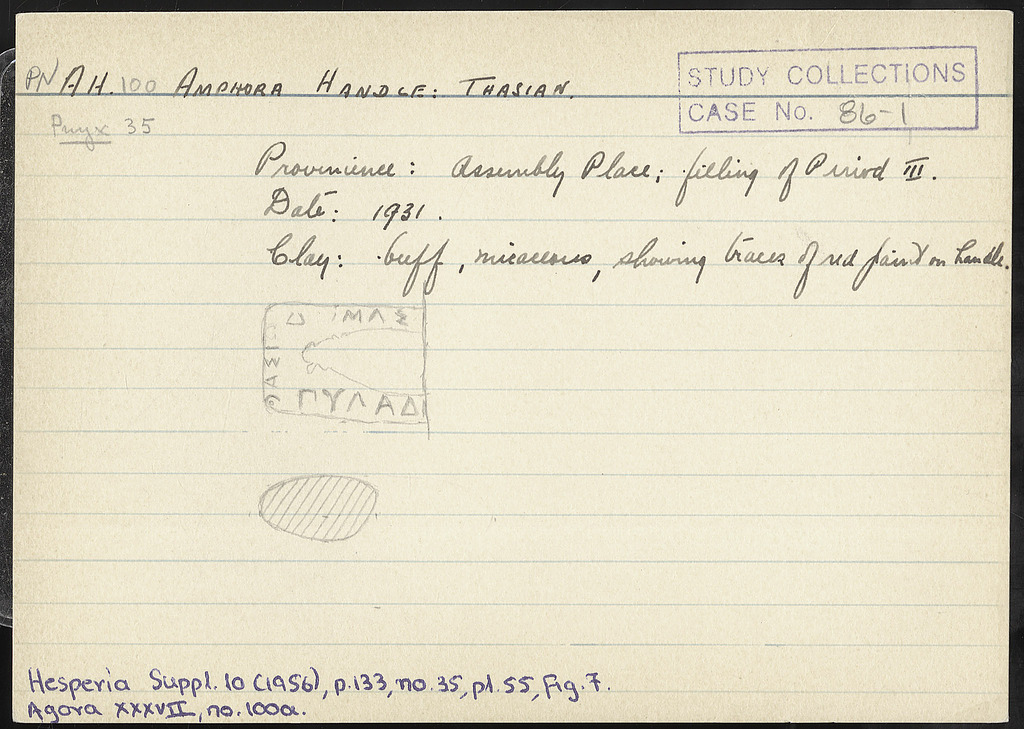 PN AH. 100 AMPHORA HANDLE: THASIAN.
STUDY COLLECTIONS
CASE No. 86-1
Pnyx 35
Provenience: Assembly Place; filling of Period III.
Date: 1931.
Clay: buff, micaceous, showing traces of red paint on handle.
Δ ΙΜΑΣ
ΘΑΣΙΩ
ΠΥΛΑΔΙ
Hesperia Suppl. 10 (1956), p.133, no.35, pl.55, Fig.7.
Agora XXXVII, no.100a.